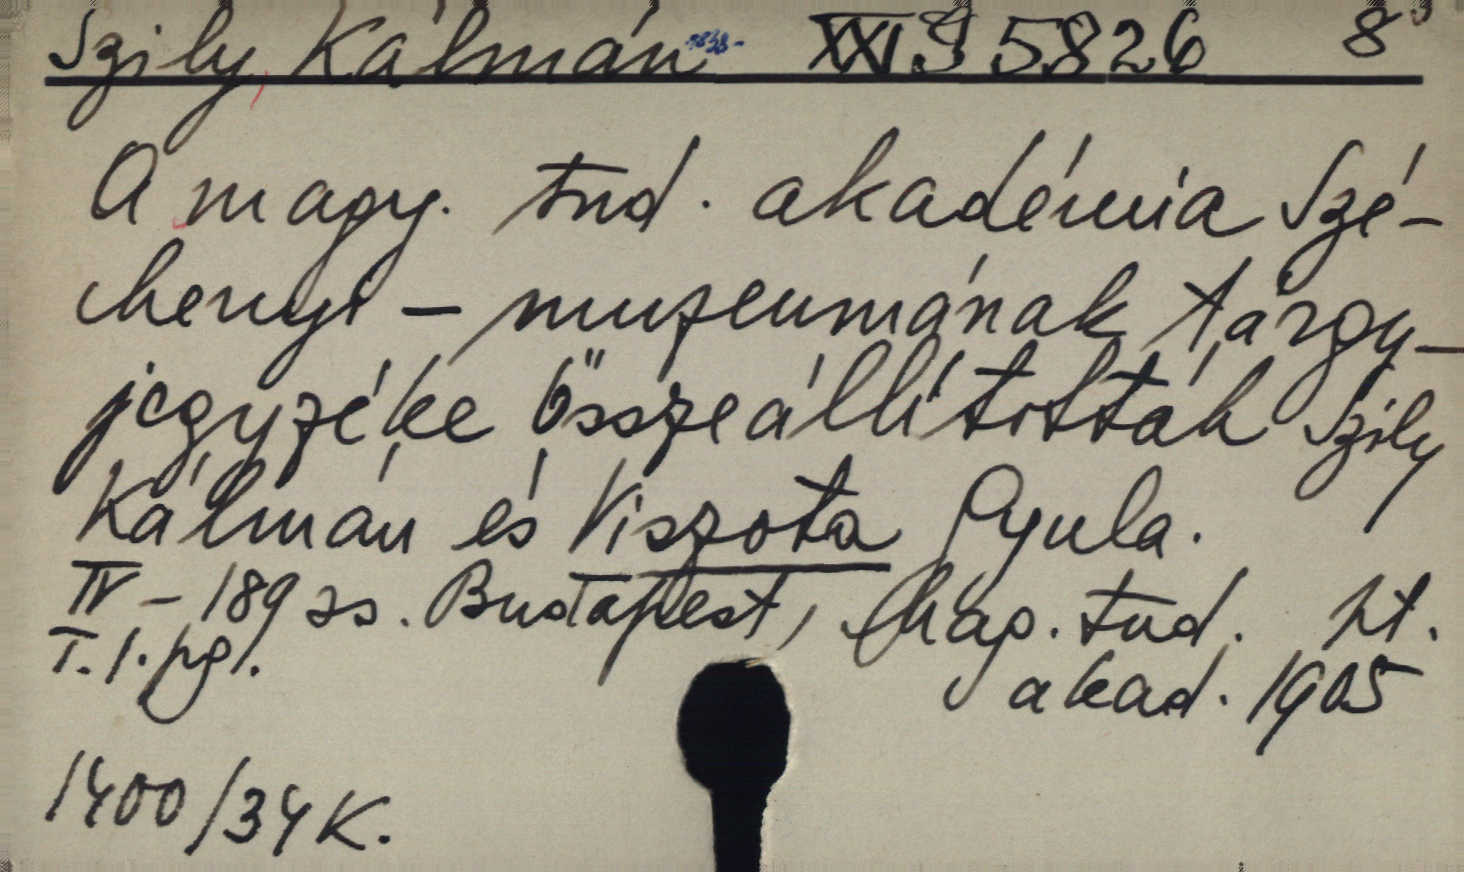 Szily Kálmán 1838- XXI S 5826 8°
A magy. tud. akadémia Szé-
chenyi - muzeumának tárgy-
jegyzéke összeállították Szily
Kálmán és Viszota Gyula.
IV - 189 ss. Budapest, Mag. tud.
T. 1. pgl. akad. 1905
1400/34 K.